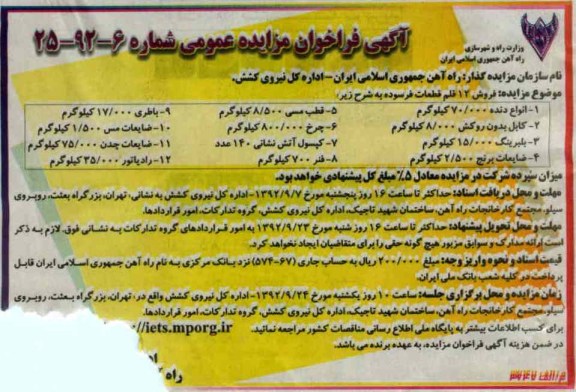 وزارت راه و شهرسازی
راه آهن جمهوری اسلامی ایران
آگهی فراخوان مزایده عمومی شماره ۶-۹۲-۲۵
نام سازمان مزایده گذار: راه آهن جمهوری اسلامی ایران - اداره کل نیروی کشش.
موضوع مزایده: فروش ۱۲ قلم قطعات فرسوده به شرح زیر:
۱- انواع دنده ۷۰/۰۰۰ کیلوگرم
۲- کابل بدون روکش ۸/۰۰۰ کیلوگرم
۳- بلبرینگ ۱۵/۰۰۰ کیلوگرم
۴- ضایعات برنج ۲/۵۰۰ کیلوگرم
۵- قطب مسی ۸/۵۰۰ کیلوگرم
۶- چرخ ۸۰۰/۰۰۰ کیلوگرم
۷- کپسول آتش نشانی ۱۴۰ عدد
۸- فنر ۷۰۰ کیلوگرم
۹- باطری ۱۷/۰۰۰ کیلوگرم
۱۰- ضایعات مس ۱/۵۰۰ کیلوگرم
۱۱- ضایعات چدن ۷۵/۰۰۰ کیلوگرم
۱۲- رادیاتور ۳۵/۰۰۰ کیلوگرم
میزان سپرده شرکت در مزایده معادل ۵٪ مبلغ کل پیشنهادی خواهد بود.
مهلت و محل دریافت اسناد: حداکثر تا ساعت ۱۶ روز پنجشنبه مورخ ۱۳۹۲/۹/۷-اداره کل نیروی کشش به نشانی، تهران، بزرگراه بعثت، روبروی
سیلو، مجتمع کارخانجات راه آهن، ساختمان شهید تاجیک، اداره کل نیروی کشش، گروه تدارکات، امور قراردادها.
مهلت و محل تحویل پیشنهاد: حداکثر تا ساعت ۱۶ روز شنبه مورخ ۱۳۹۲/۹/۲۳ به امور قراردادهای گروه تدارکات به نشانی فوق. لازم به ذکر
است ارائه مدارک و سوابق مزبور هیچ گونه حقی را برای متقاضیان ایجاد نخواهد کرد.
قیمت اسناد و نحوه واریز وجه: مبلغ ۲۰۰/۰۰۰ ریال به حساب جاری (۶۷-۵۷۴) نزد بانک مرکزی به نام راه آهن جمهوری اسلامی ایران قابل
پرداخت در کلیه شعب بانک ملی ایران.
زمان مزایده و محل برگزاری جلسه: ساعت ۱۰ روز یکشنبه مورخ ۱۳۹۲/۹/۲۴-اداره کل نیروی کشش واقع در: تهران، بزرگراه بعثت، روبروی
سیلو، مجتمع کارخانجات راه آهن، ساختمان شهید تاجیک، اداره کل نیروی کشش، گروه تدارکات، امور قراردادها.
برای کسب اطلاعات بیشتر به پایگاه ملی اطلاع رسانی مناقصات کشور مراجعه نمائید. //iets.mporg.ir
در ضمن هزینه آگهی فراخوان مزایده، به عهده برنده می باشد.
راه